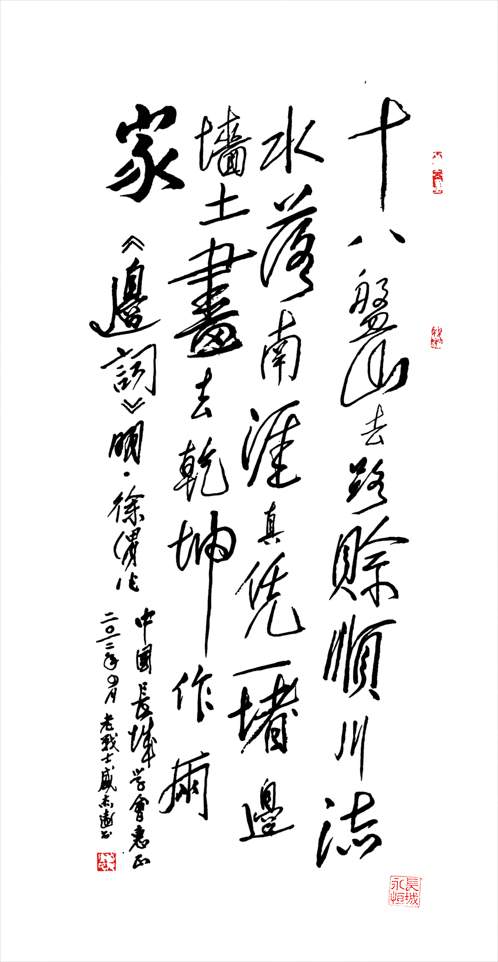 十八盤山去路賒順川流
水落南涯真凭一堵邊
墻土畫去乾坤作兩
家《邊詞》明·徐渭作
中國長城学會惠正
二〇一二年四月老戰士盛
長城永恒